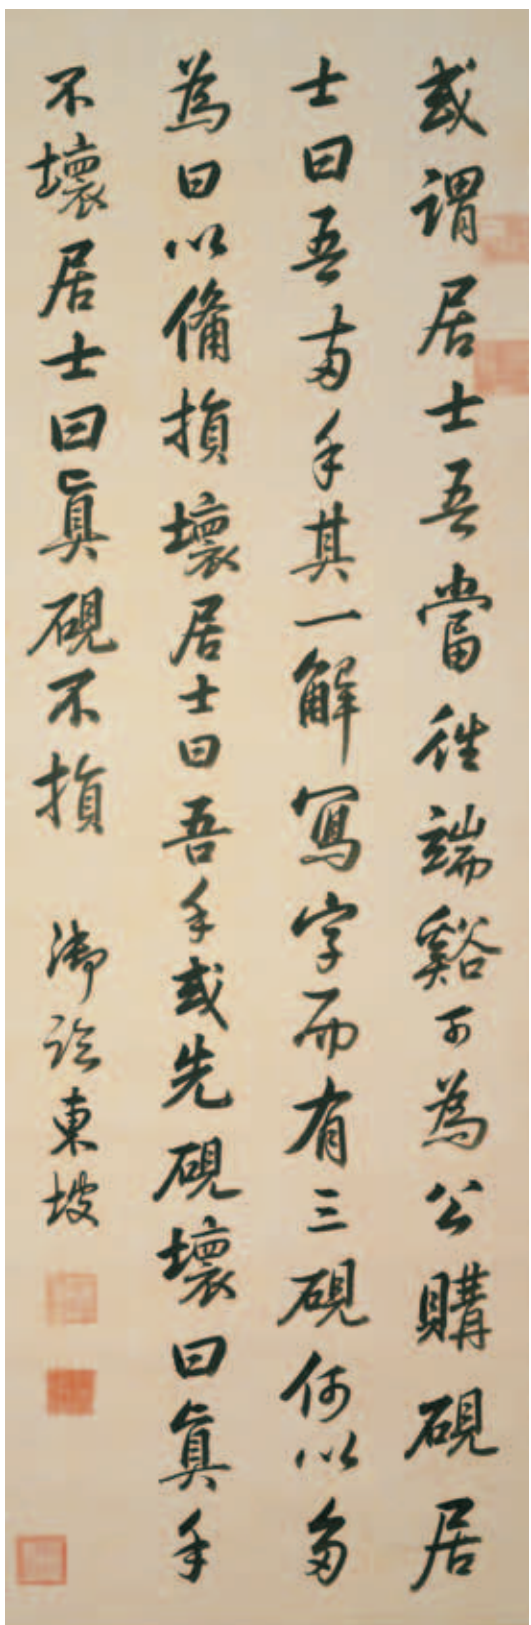 或謂居士吾當往端谿可為公購硯居
士曰吾兩手其一解寫字而有三硯何以多
為曰以備損壞居士曰吾手或先硯壞曰真手
不壞居士曰真硯不損 御詮東坡